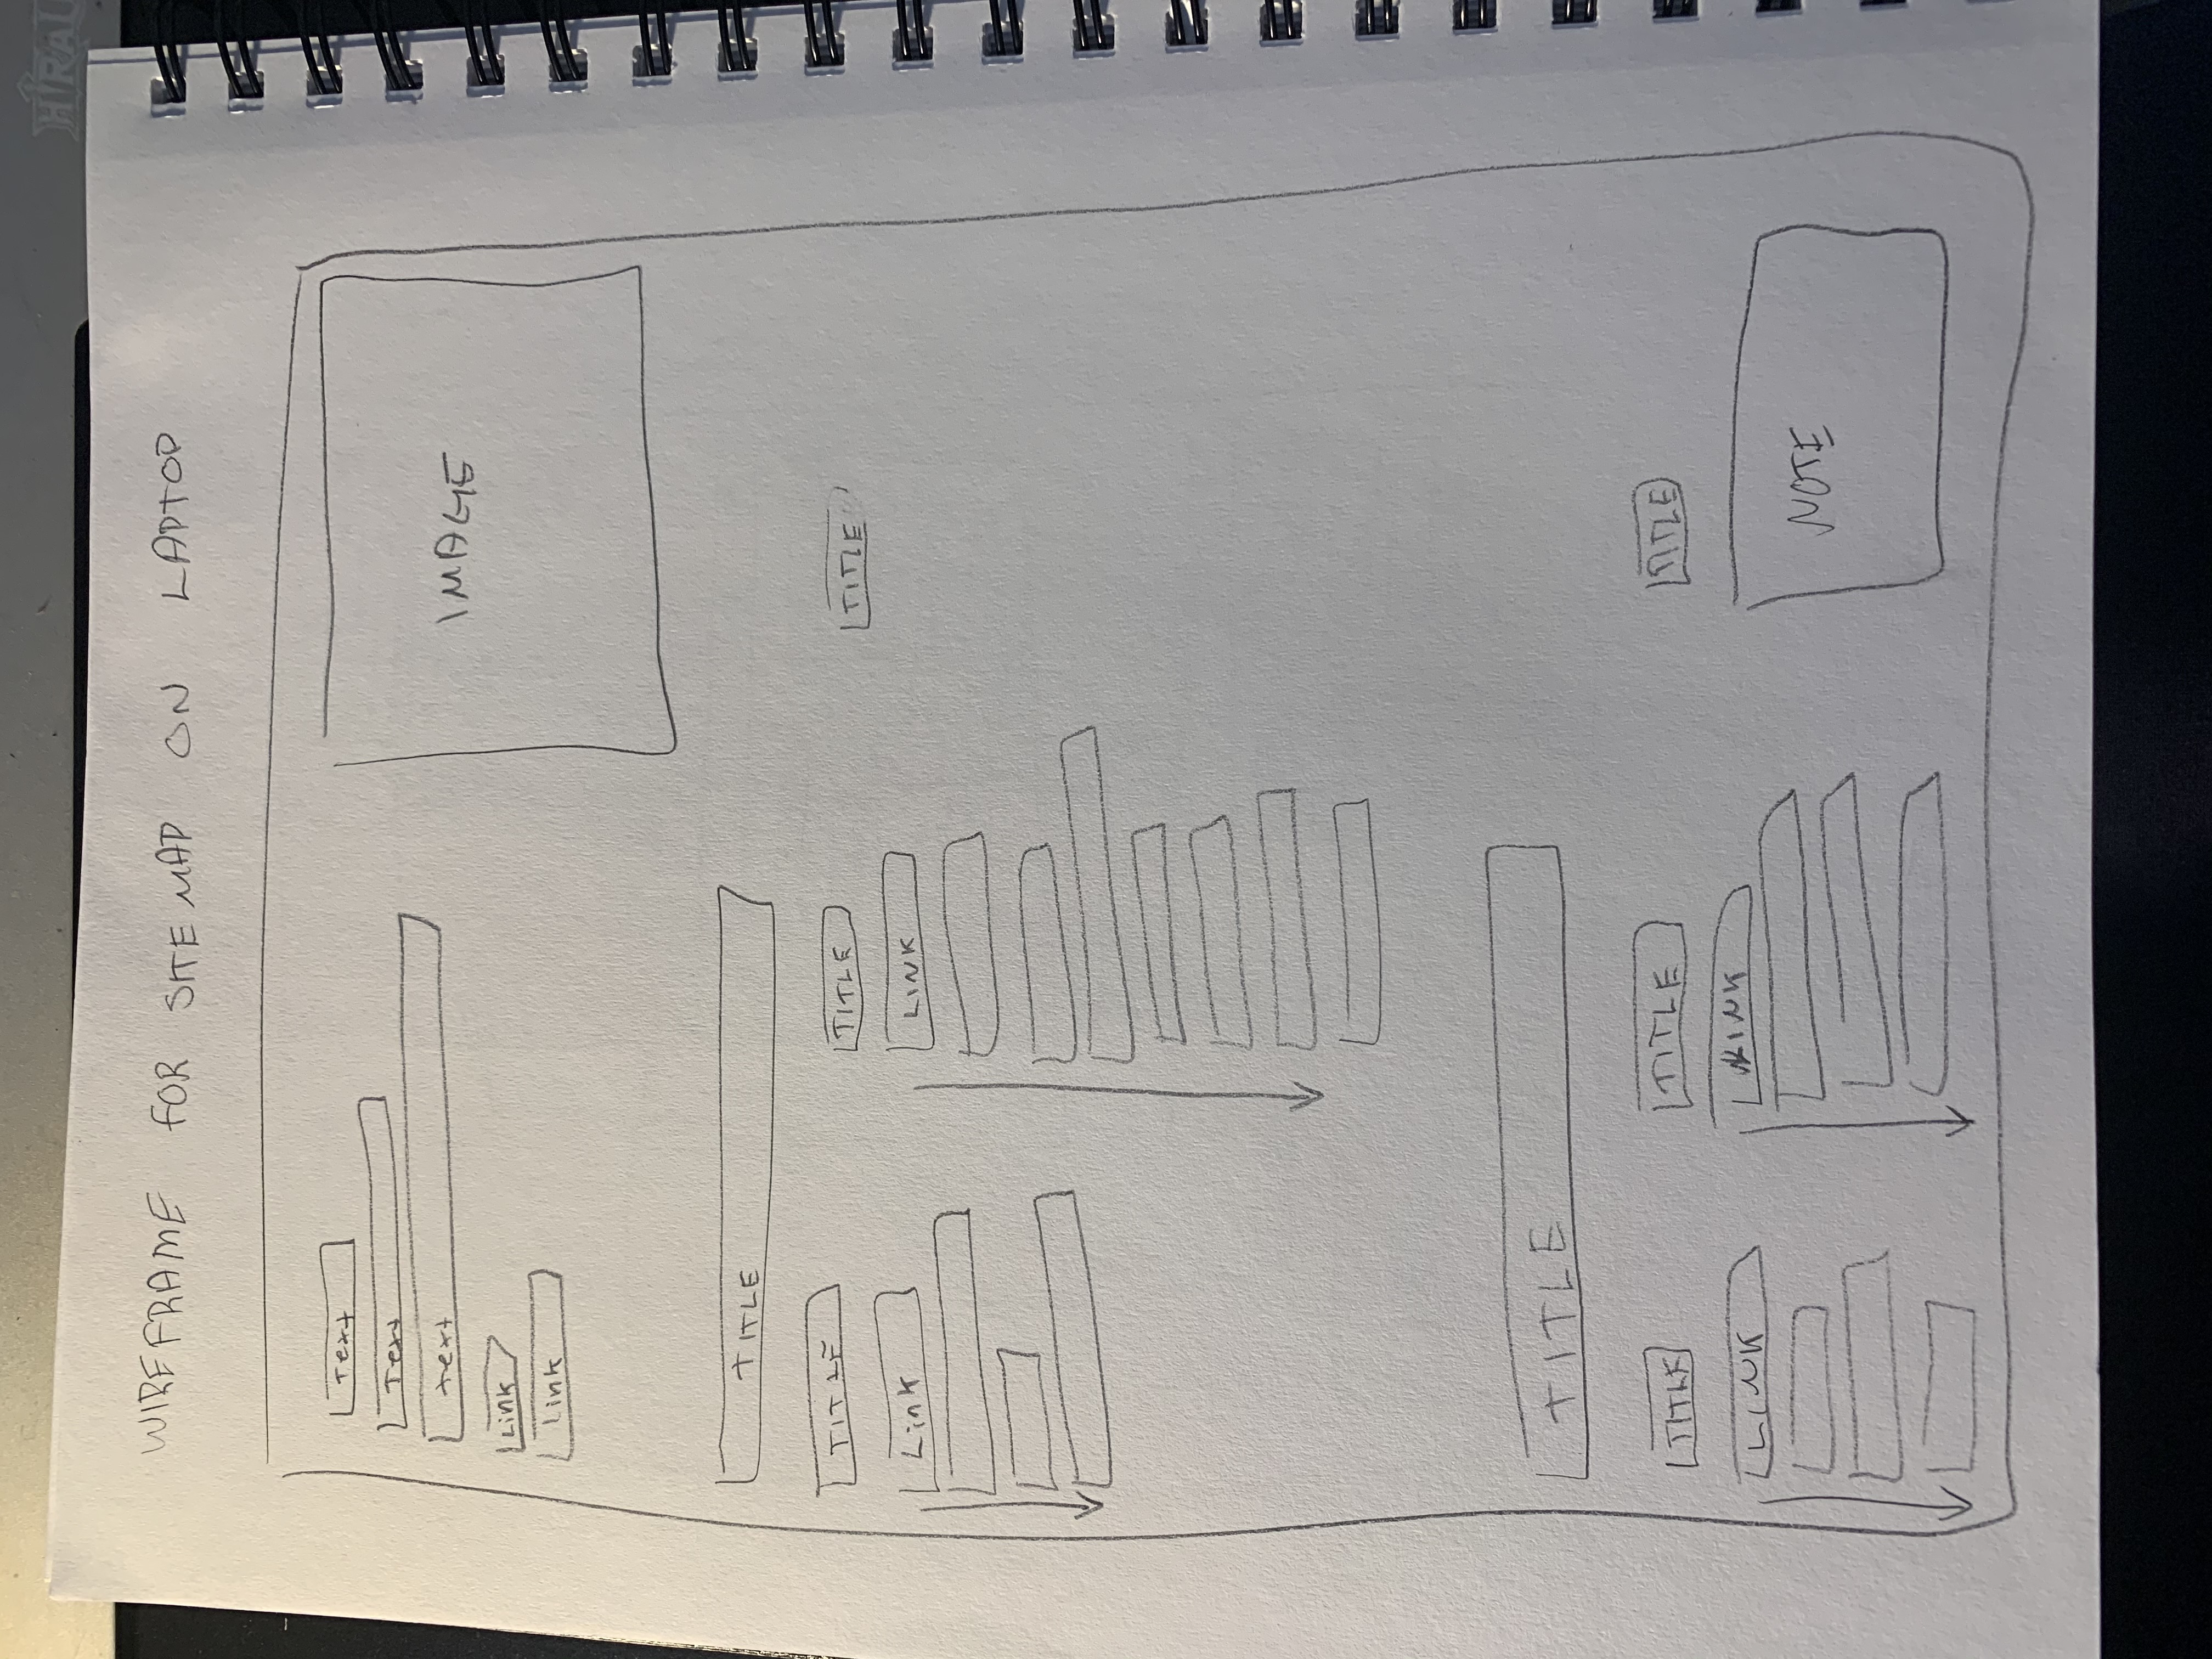 WIREFRAME FOR SITEMAP ON LAPTOP
Text
Text
text
Link
Link
IMAGE
TITLE
TITLE
TITLE
TITLE
Link
LINK
TITLE
TITLE
TITLE
TITLE
LINK
LINK
NOTE